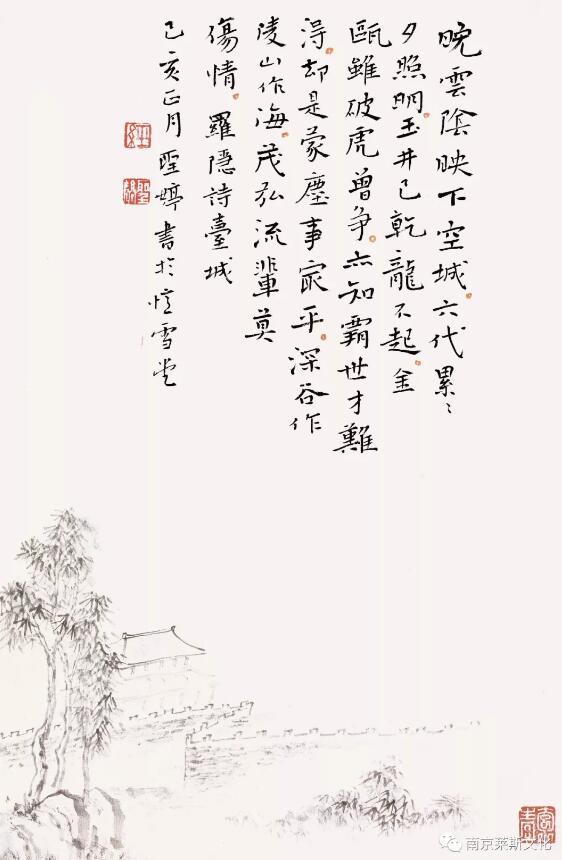 晚雲陰映下空城。六代累〻
夕照明。玉井已乾龍不起。金
甌雖破虎曾争。亦知霸世才難
得。却是蒙塵事最平。深谷作
陵山作海。茂弘流輩莫
傷情。羅隱詩臺城
己亥正月聖婷書於忆雪堂
南京莱斯文化